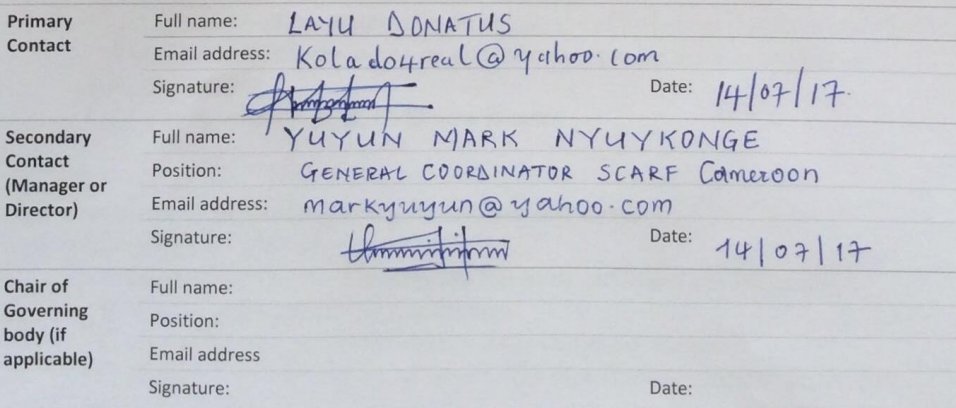 Primary Contact
Full name: LAYU DONATUS
Email address: Kolado4real@yahoo.com
Signature: Date: 14/07/17.
Secondary Contact (Manager or Director)
Full name: YUYUN MARK NYUYKONGE
Position: GENERAL COORDINATOR SCARF Cameroon
Email address: markyuyun@yahoo.com
Signature: Date: 14/07/17
Chair of Governing body (if applicable)
Full name:
Position:
Email address
Signature: Date: